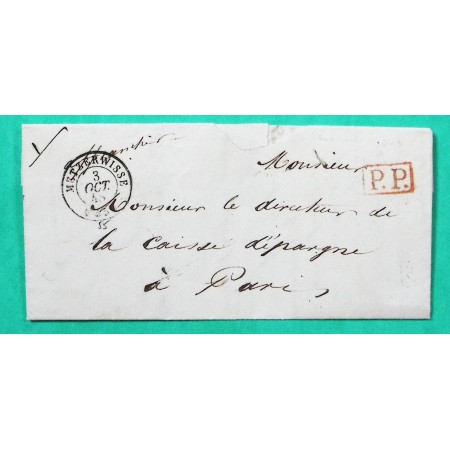 Affranchie
METZERWISSE
3
OCT.
Monsieur
P.P.
Monsieur le directeur de
la caisse d'épargne
à Paris,